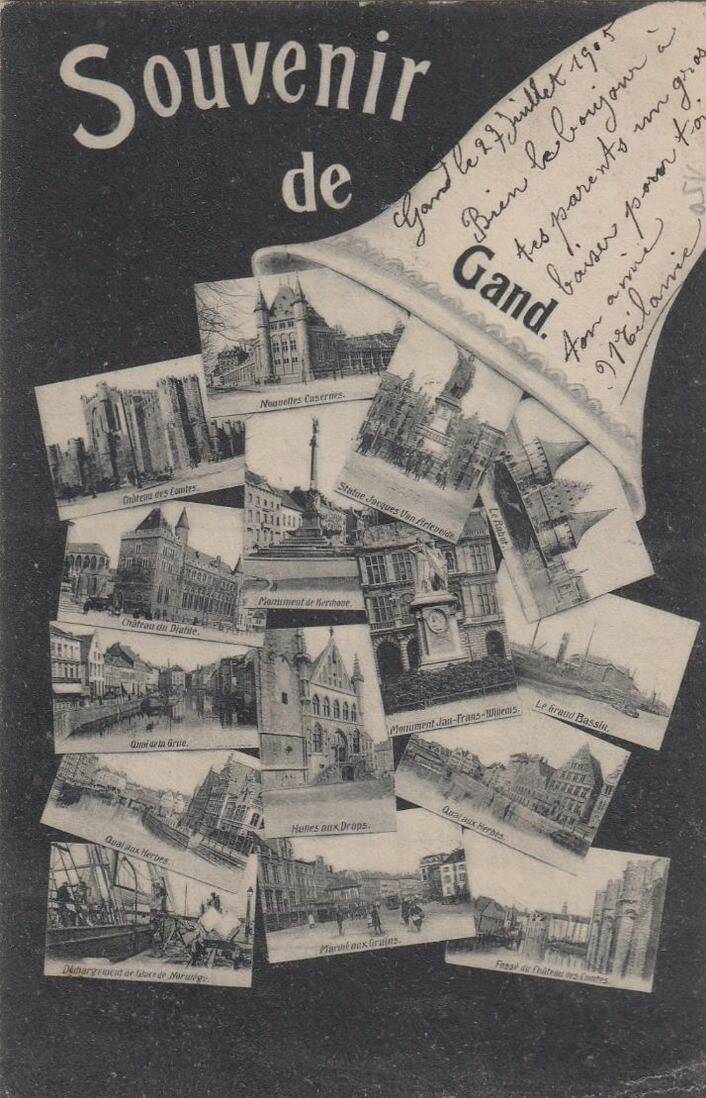 Souvenir
de
Gand.
Gand le 27 Juillet 1905
Bien le boujour à
tes parents un gros
baiser pour toi
ton amie
Mélanie
Nouvelles Casernes.
Château des Comtes.
Statue Jacques Van Artevelde.
Le Rabot.
Monument de Kerchove.
Château du Diable.
Monument Jan-Frans-Willems.
Le Grand Bassin.
Quai de la Grue.
Halles aux Draps.
Quai aux Herbes.
Quai aux Herbes.
Déchargement de Glace de Norwège.
Marché aux Grains.
Fossé du Château des Comtes.